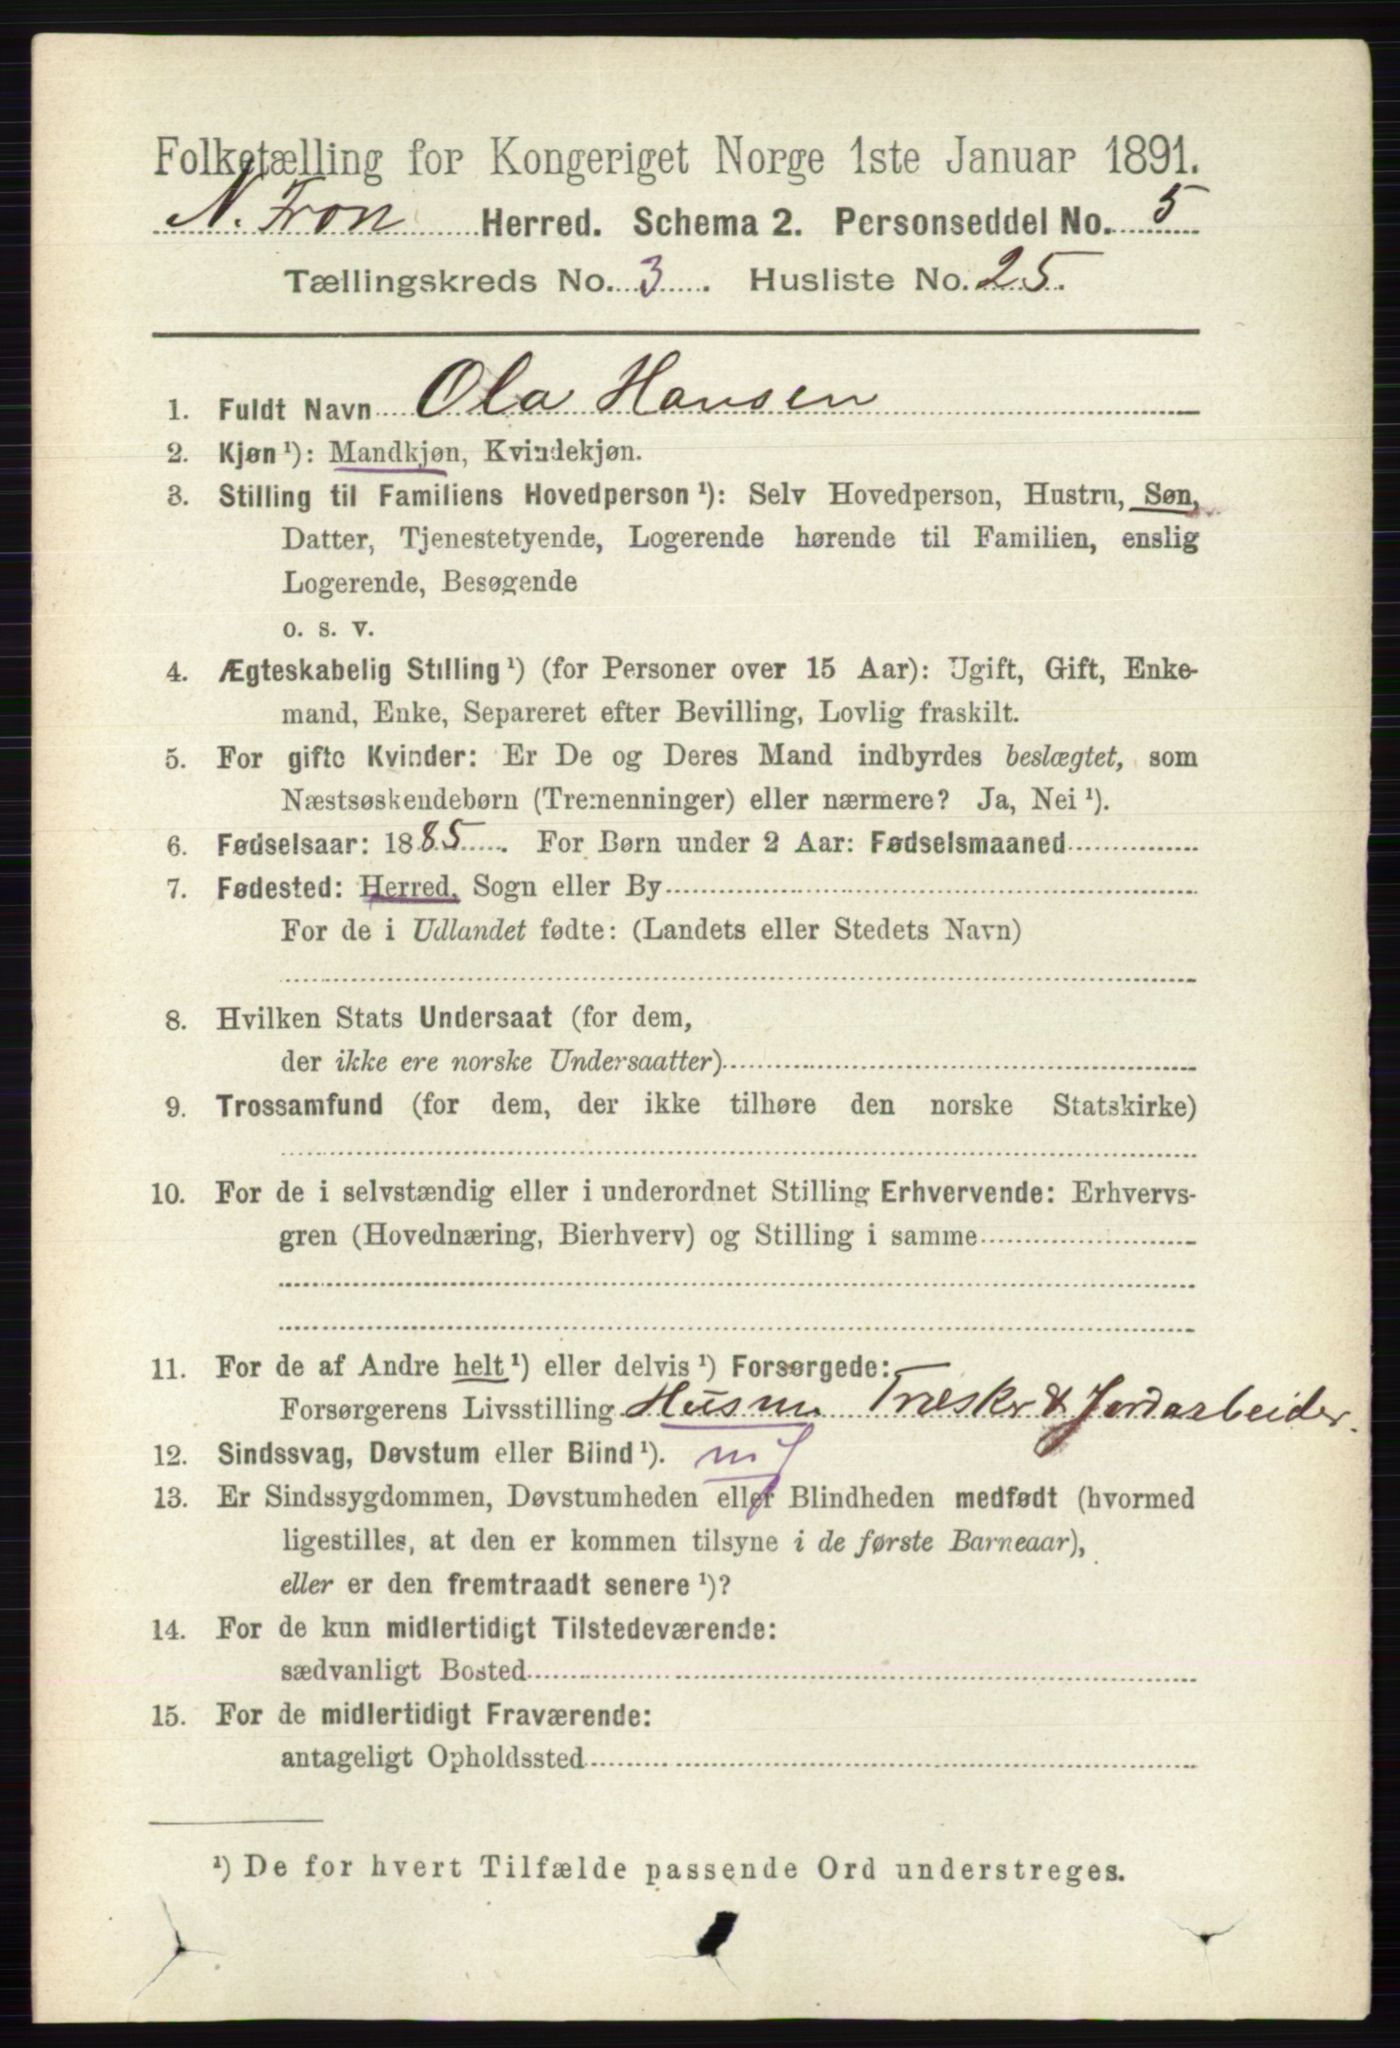 Folketælling for Kongeriget Norge 1ste Januar 1891.
N. Fron Herred. Schema 2. Personseddel No. 5
Tællingskreds No. 3. Husliste No. 25.
1. Fuldt Navn Ola Hansen
2. Kjøn ¹): Mandkjøn, Kvindekjøn.
3. Stilling til Familiens Hovedperson ¹): Selv Hovedperson, Hustru, Søn,
Datter, Tjenestetyende, Logerende hørende til Familien, enslig
Logerende, Besøgende
o. s. v.
4. Ægteskabelig Stilling ¹) (for Personer over 15 Aar): Ugift, Gift, Enke-
mand, Enke, Separeret efter Bevilling, Lovlig fraskilt.
5. For gifte Kvinder: Er De og Deres Mand indbyrdes beslægtet, som
Næstsøskendebørn (Tremenninger) eller nærmere? Ja, Nei ¹).
6. Fødselsaar: 1885. For Børn under 2 Aar: Fødselsmaaned
7. Fødested: Herred, Sogn eller By
For de i Udlandet fødte: (Landets eller Stedets Navn)
8. Hvilken Stats Undersaat (for dem,
der ikke ere norske Undersaatter)
9. Trossamfund (for dem, der ikke tilhøre den norske Statskirke)
10. For de i selvstændig eller i underordnet Stilling Erhvervende: Erhvervs-
gren (Hovednæring, Bierhverv) og Stilling i samme
11. For de af Andre helt ¹) eller delvis ¹) Forsørgede:
Forsørgerens Livsstilling Husm. Træskr & Jordarbeider.
12. Sindssvag, Døvstum eller Blind ¹).
13. Er Sindssygdommen, Døvstumheden eller Blindheden medfødt (hvormed
ligestilles, at den er kommen tilsyne i de første Barneaar),
eller er den fremtraadt senere ¹)?
14. For de kun midlertidigt Tilstedeværende:
sædvanligt Bosted
15. For de midlertidigt Fraværende:
antageligt Opholdssted
¹) De for hvert Tilfælde passende Ord understreges.